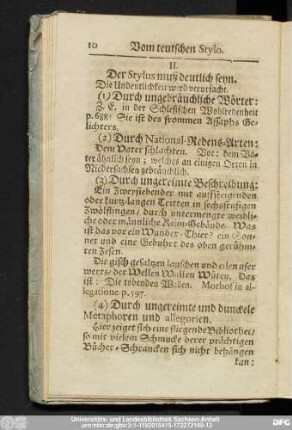 10 Vom teutschen Stylo.
II.
Der Stylus muß deutlich seyn.
Die Undeutlichkeit wird verursacht.
(1) Durch ungebräuchliche Wörter:
Z. E. in der Schlesischen Wohlredenheit
p. 688. Sie ist des frommen Assaphs Ge-
lichters.
(2) Durch National-Redens-Arten:
Dem Vater schlachten. Vor: dem Va-
ter ähnlich seyn; welches an einigen Orten in
Niedersachsen gebräuchlich.
(3) Durch ungereimte Beschreibung:
Ein Zweysiebender mit aufsteigenden
oder kurtz-langen Tritten in sechsfüsigen
Zwölflingen, durch untermengte weibli-
che oder männliche Reim-Gebände. Was
ist das vor ein Wunder-Thier? ein Son-
net und eine Gebuhrt des oben gerühm-
ten Zesen.
Die gisch gesaltzen lauschen und
werts, der Wellen Wallen Wüten. Das
ist: Die tobenden Wellen. Morhof in al-
legatione p. 597.
(4) Durch ungereimte und dunckele
Metaphoren und allegorien.
Hier zeiget sich eine fliegende Bibliothec,
so mit vielem Schmucke derer prächtigen
Bücher-Schrancken sich nicht behängen
kan:
Universitäts- und Landesbibliothek Sachsen-Anhalt
urn:nbn:de:gbv:3:1-1192015415-172272149-13
DFG